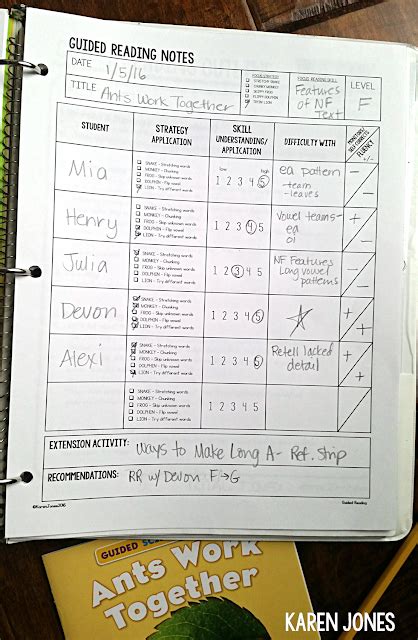 GUIDED READING NOTES
DATE 1/5/16
FOCUS STRATEGY
SNAKE
CHUNKY MONKEY
SKIPPY FROG
FLIPPY DOLPHIN
LION
FOCUS READING SKILL
Features of NF Text
LEVEL
F
TITLE Ants Work Together
STUDENT
STRATEGY APPLICATION
SKILL UNDERSTANDING/ APPLICATION
DIFFICULTY WITH
FLUENCY
+/-
Mia
SNAKE - Stretching words
MONKEY - Chunking
FROG - Skip unknown words
DOLPHIN - Flip vowel
LION - Try different words
low high
1 2 3 4 5
ea pattern
-team
-leaves
-
-
Henry
SNAKE - Stretching words
MONKEY - Chunking
FROG - Skip unknown words
DOLPHIN - Flip vowel
LION - Try different words
1 2 3 4 5
Vowel teams-
ea
oi
+
-
Julia
SNAKE - Stretching words
MONKEY - Chunking
FROG - Skip unknown words
DOLPHIN - Flip vowel
LION - Try different words
1 2 3 4 5
NF Features
Long vowel
patterns
-
-
Devon
SNAKE - Stretching words
MONKEY - Chunking
FROG - Skip unknown words
DOLPHIN - Flip vowel
LION - Try different words
1 2 3 4 5
+
+
Alexi
SNAKE - Stretching words
MONKEY - Chunking
FROG - Skip unknown words
DOLPHIN - Flip vowel
LION - Try different words
1 2 3 4 5
Retell lacked
detail
+
+
SNAKE - Stretching words
MONKEY - Chunking
FROG - Skip unknown words
DOLPHIN - Flip vowel
LION - Try different words
1 2 3 4 5
EXTENSION ACTIVITY: Ways to Make Long A- Ref. Strip
RECOMMENDATIONS: RR w/ Devon F→G
©KarenJones2016
Guided Reading
GUIDED
Ants Work
Together
KAREN JONES